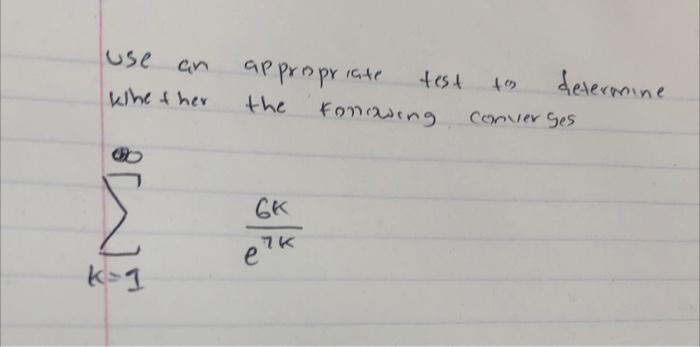 use an appropriate test to determine
whether the following converges
∞
∑ 6k
e^7k
k=1